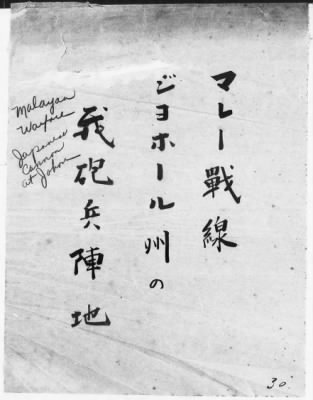 マレー戰線
ジヨホール州の
我砲兵陣地
Malayan
Warfare
Japanese
Cannon
at Johore
30